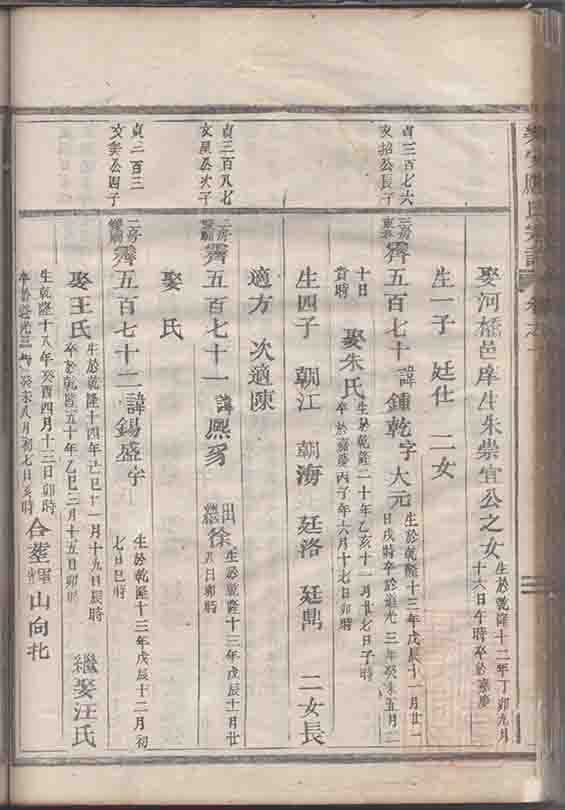 娶河橋邑庠生朱崇宜公之女 生於乾隆十二年丁卯九月
十六日午時卒於嘉慶
生一子 廷仕 二女
貞三百七六
文招公長子
三房
霽五百七十 諱鍾乾字大元 生於乾隆十三年戊辰十一月廿一
日戌時卒於道光三年癸未五月二
十日
時 娶朱氏 生於乾隆二十年乙亥十一月廿七日子時
卒於嘉慶丙子年六月十七日卯時
生四子 朝江 朝海 廷洛 廷鳳 二女長
適方 次適陳
貞三百八七
文星公次子
二房
霽五百七十一 諱熙 徐 生於乾隆十三年戊辰十月廿
九日卯時
娶 氏
貞二百三
文 公四子
二房
霽五百七十二 諱錫盛字 生於乾隆十三年戊辰十二月初
七日巳時
娶王氏 生於乾隆十四年己巳十一月十九日辰時
卒於乾隆五十年乙巳三月十五日卯時 繼娶汪氏
生乾隆十八年癸酉四月十三日卯時
卒於道光三年癸未八月初七日亥時 合塟 山向北